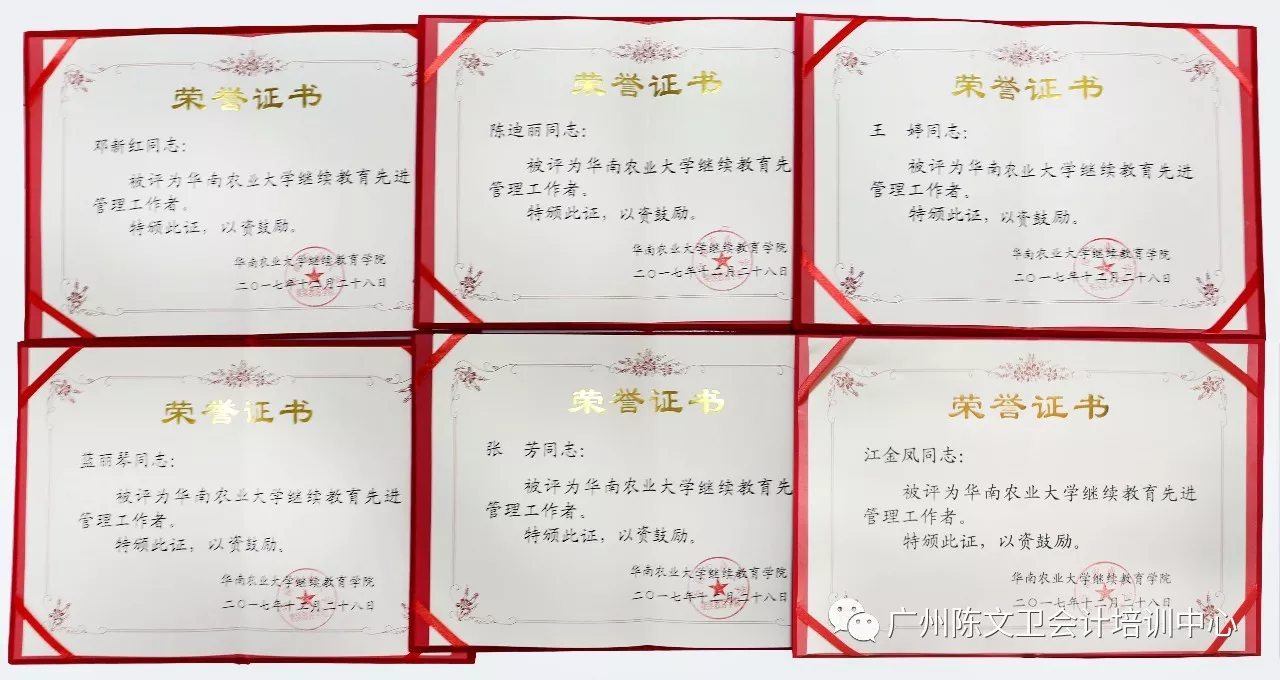 荣誉证书
邓新红同志：
被评为华南农业大学继续教育先进
管理工作者。
特颁此证，以资鼓励。
华南农业大学继续教育学院
二〇一七年十二月二十八日
荣誉证书
陈迪丽同志：
被评为华南农业大学继续教育先
管理工作者。
特颁此证，以资鼓励。
华南农业大学继续教育学院
二〇一七年十二月二十八日
荣誉证书
王　婷同志：
被评为华南农业大学继续教育先进
管理工作者。
特颁此证，以资鼓励。
华南农业大学继续教育学院
二〇一七年十二月二十八日
荣誉证书
蓝丽琴同志：
被评为华南农业大学继续教育先进
管理工作者。
特颁此证，以资鼓励。
华南农业大学继续教育学院
二〇一七年十二月二十八日
荣誉证书
张　芳同志：
被评为华南农业大学继续教育先
管理工作者。
特颁此证，以资鼓励。
华南农业大学继续教育学院
二〇一七年十二月二十八日
荣誉证书
江金凤同志：
被评为华南农业大学继续教育先进
管理工作者。
特颁此证，以资鼓励。
华南农业大学继续教育学院
二〇一七年十二月二十八日
广州陈文卫会计培训中心